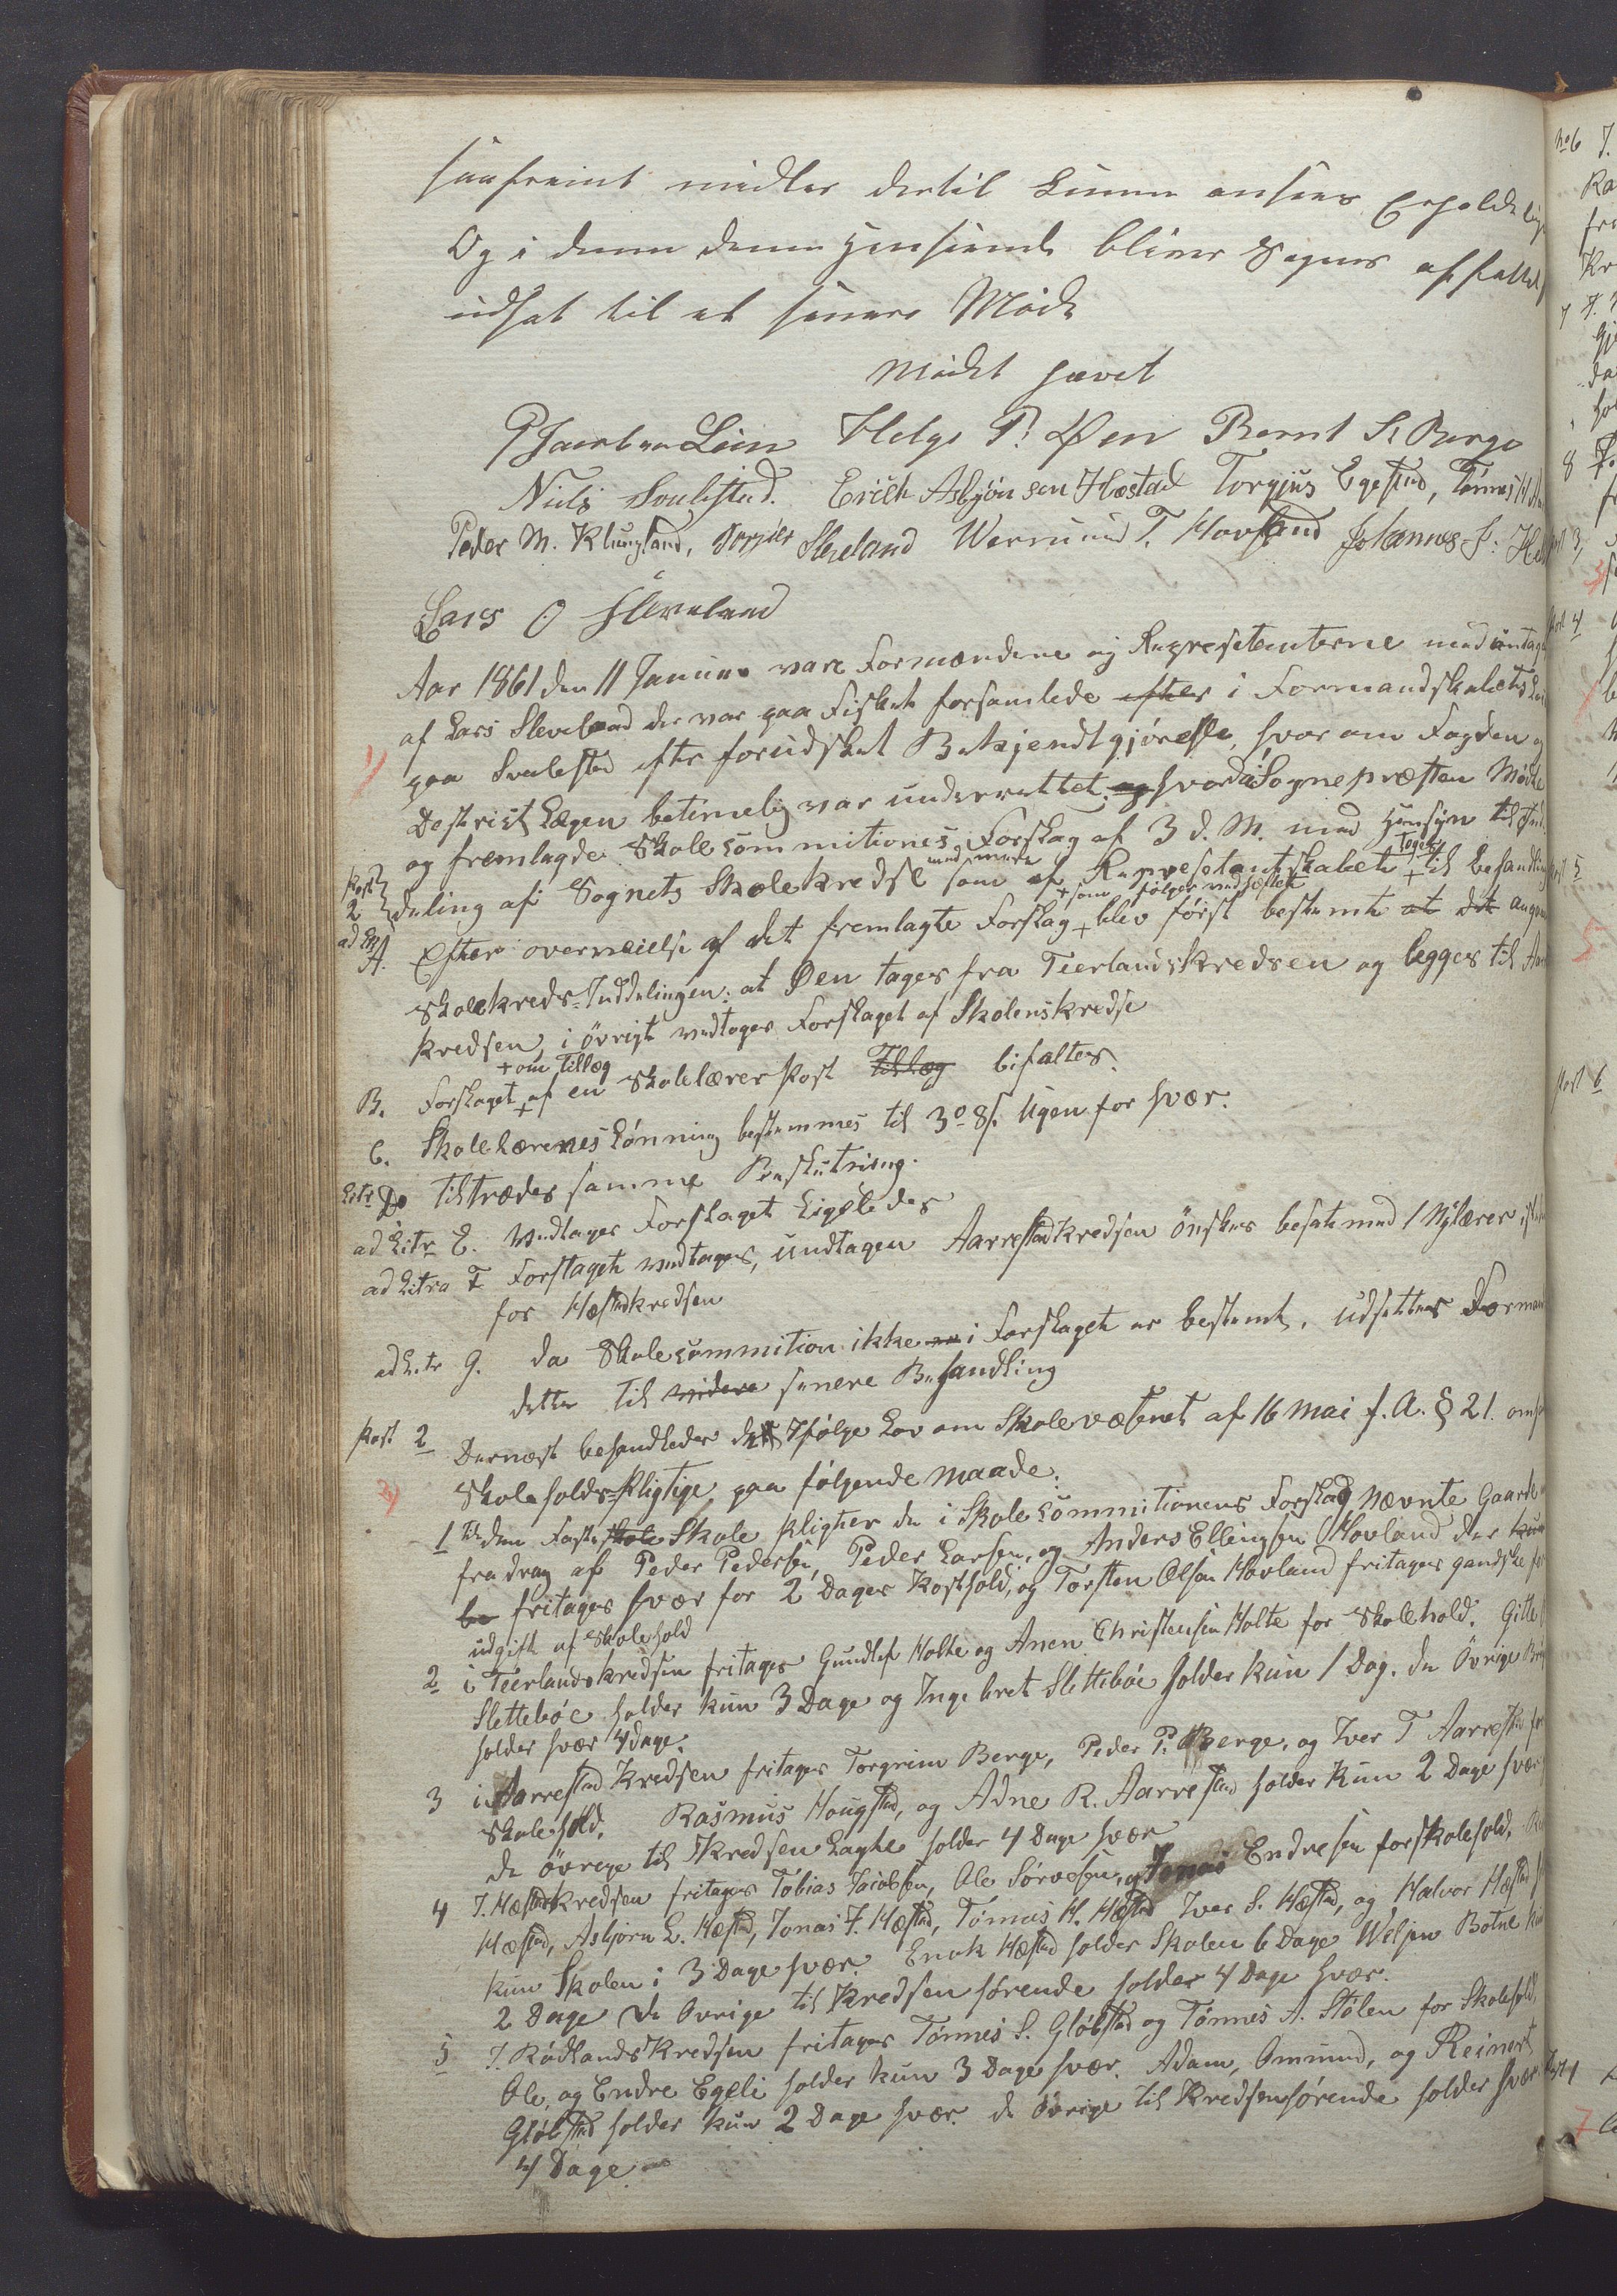 saafremt midler dertil kunne ansees Erholdelige
Og i denne denne Henseende bliver Sagens affattelse
udsat til et senere Møde
Mødet hævet
Helge P. Øen Bernt S. Berge
Niels Svalestad. Erich Asbjønsen Hæstad Torgius Egeland, Tønnes
Peder M. Klungland, Torgier Sleveland Wermund T. Hovland Johannes
Lars O Sleveland
Aar 1861 den 11 Januar vare Formændene og Represetanterne med undtagelse
af Lars Sleveland der var paa Fisket forsamlede efter i Formandskabets
1) paa Svalestad efter forudskut Bekjendtgjørelse, hvorom Fogden og
Destrict Lægen betimelig var underrettet. og hvorda Sognepræsten Mødte
og fremlagde Skolecommitiones Forslag af 3 d. M. med Hensyn til Ind-
Post 2 deling af Sognets Skolekredse som med mere af Represetantskabet + toges til behandling
ad Litr A. Efter overveielse af det fremlagte Forslag + som følger vedhæftet blev først bestemt at det angaaende
Skolekreds-Inddelingen: at Øen tages fra Teerlandskredsen og legges til
kredsen, i øvrigt vedtages Forslaget af Skolenskredse
B. Forslaget + om Tillæg af en Skolelærer Post Tillæg bifaltes.
C. Skolelærernes Lønning bestemmes til 3 o 8 s. Ugen for hvær.
Litr D. tiltrædes samme Beslutning.
ad Litr E. Vedtages Forslaget Ligeledes
ad Litra F Forslaget vedtages, undtagen Aarrestadkredsen ønskes besat med 1 Nylærer
for Hæstadkredsen
ad Litr G. da Skolecommition ikke i Forslaget er bestemt, udsættes
dette til videre senere Behandling
Post 2 Dernæst behandledes det Ifølge Lov om Skolevæsenet af 16 Mai f. A. § 21.
2) Skoleholds-Pligtige paa følgende Maade:
1 Til den Faste Skole Skole Pligter de i Skolecommitionens Forslag Nævnte Gaarde
fradrag af Peder Pedersen, Peder Larsen, og Anders Ellingsen Hovland der kun
be fritages hvær for 2 Dages Kosthold, og Torsten Olsen Hovland fritages gandske for
udgift af Skolehold
2 i Teerlandskredsen fritages Gundlef Holte og Anen Christensen Holte for Skolehold. Gitle
Slettebøe holder kun 3 Dage og Ingebret Slettebøe holder kun 1 Dag. de Øvrige
holder hvær 4 Dage.
3 i Aarrestad Kredsen fritages Torgrim Berge, Peder P. Berge, og Iver T Aarrestad for
Skolehold. Rasmus Hougstad, og Adne R. Aarrestad holder kun 2 Dage hvær
de øvrige til Kredsen Lagte holder 4 Dage hvær
4 I. Hæstadkredsen fritages Tobias Jacobsen, Ole Sørvesen, og Jonas Endresen for Skolehold.
Hæstad, Asbjørn L. Hæstad, Jonas J. Hæstad, Tønnes H. Hæstad Iver S. Hæstad, og Halvor Hæstad
kun Skolen i 3 Dage hvær. Enok Hæstad holder Skolen 6 Dage Weljen Botne kun
2 Dage de Øvrige til Kredsen hørende holder 4 Dage hvær.
5 I. Rødlandskredsen fritages Tønnes S. Gløbstad og Tønnes A. Stølen for Skolehold,
Ole, og Endre Egeli holder kun 3 Dage hvær. Adam, Omund, og Reinert
Gløbstad holder kun 2 Dage hvær. de Øvrige til Kredsen hørende holder hvær
4 Dage